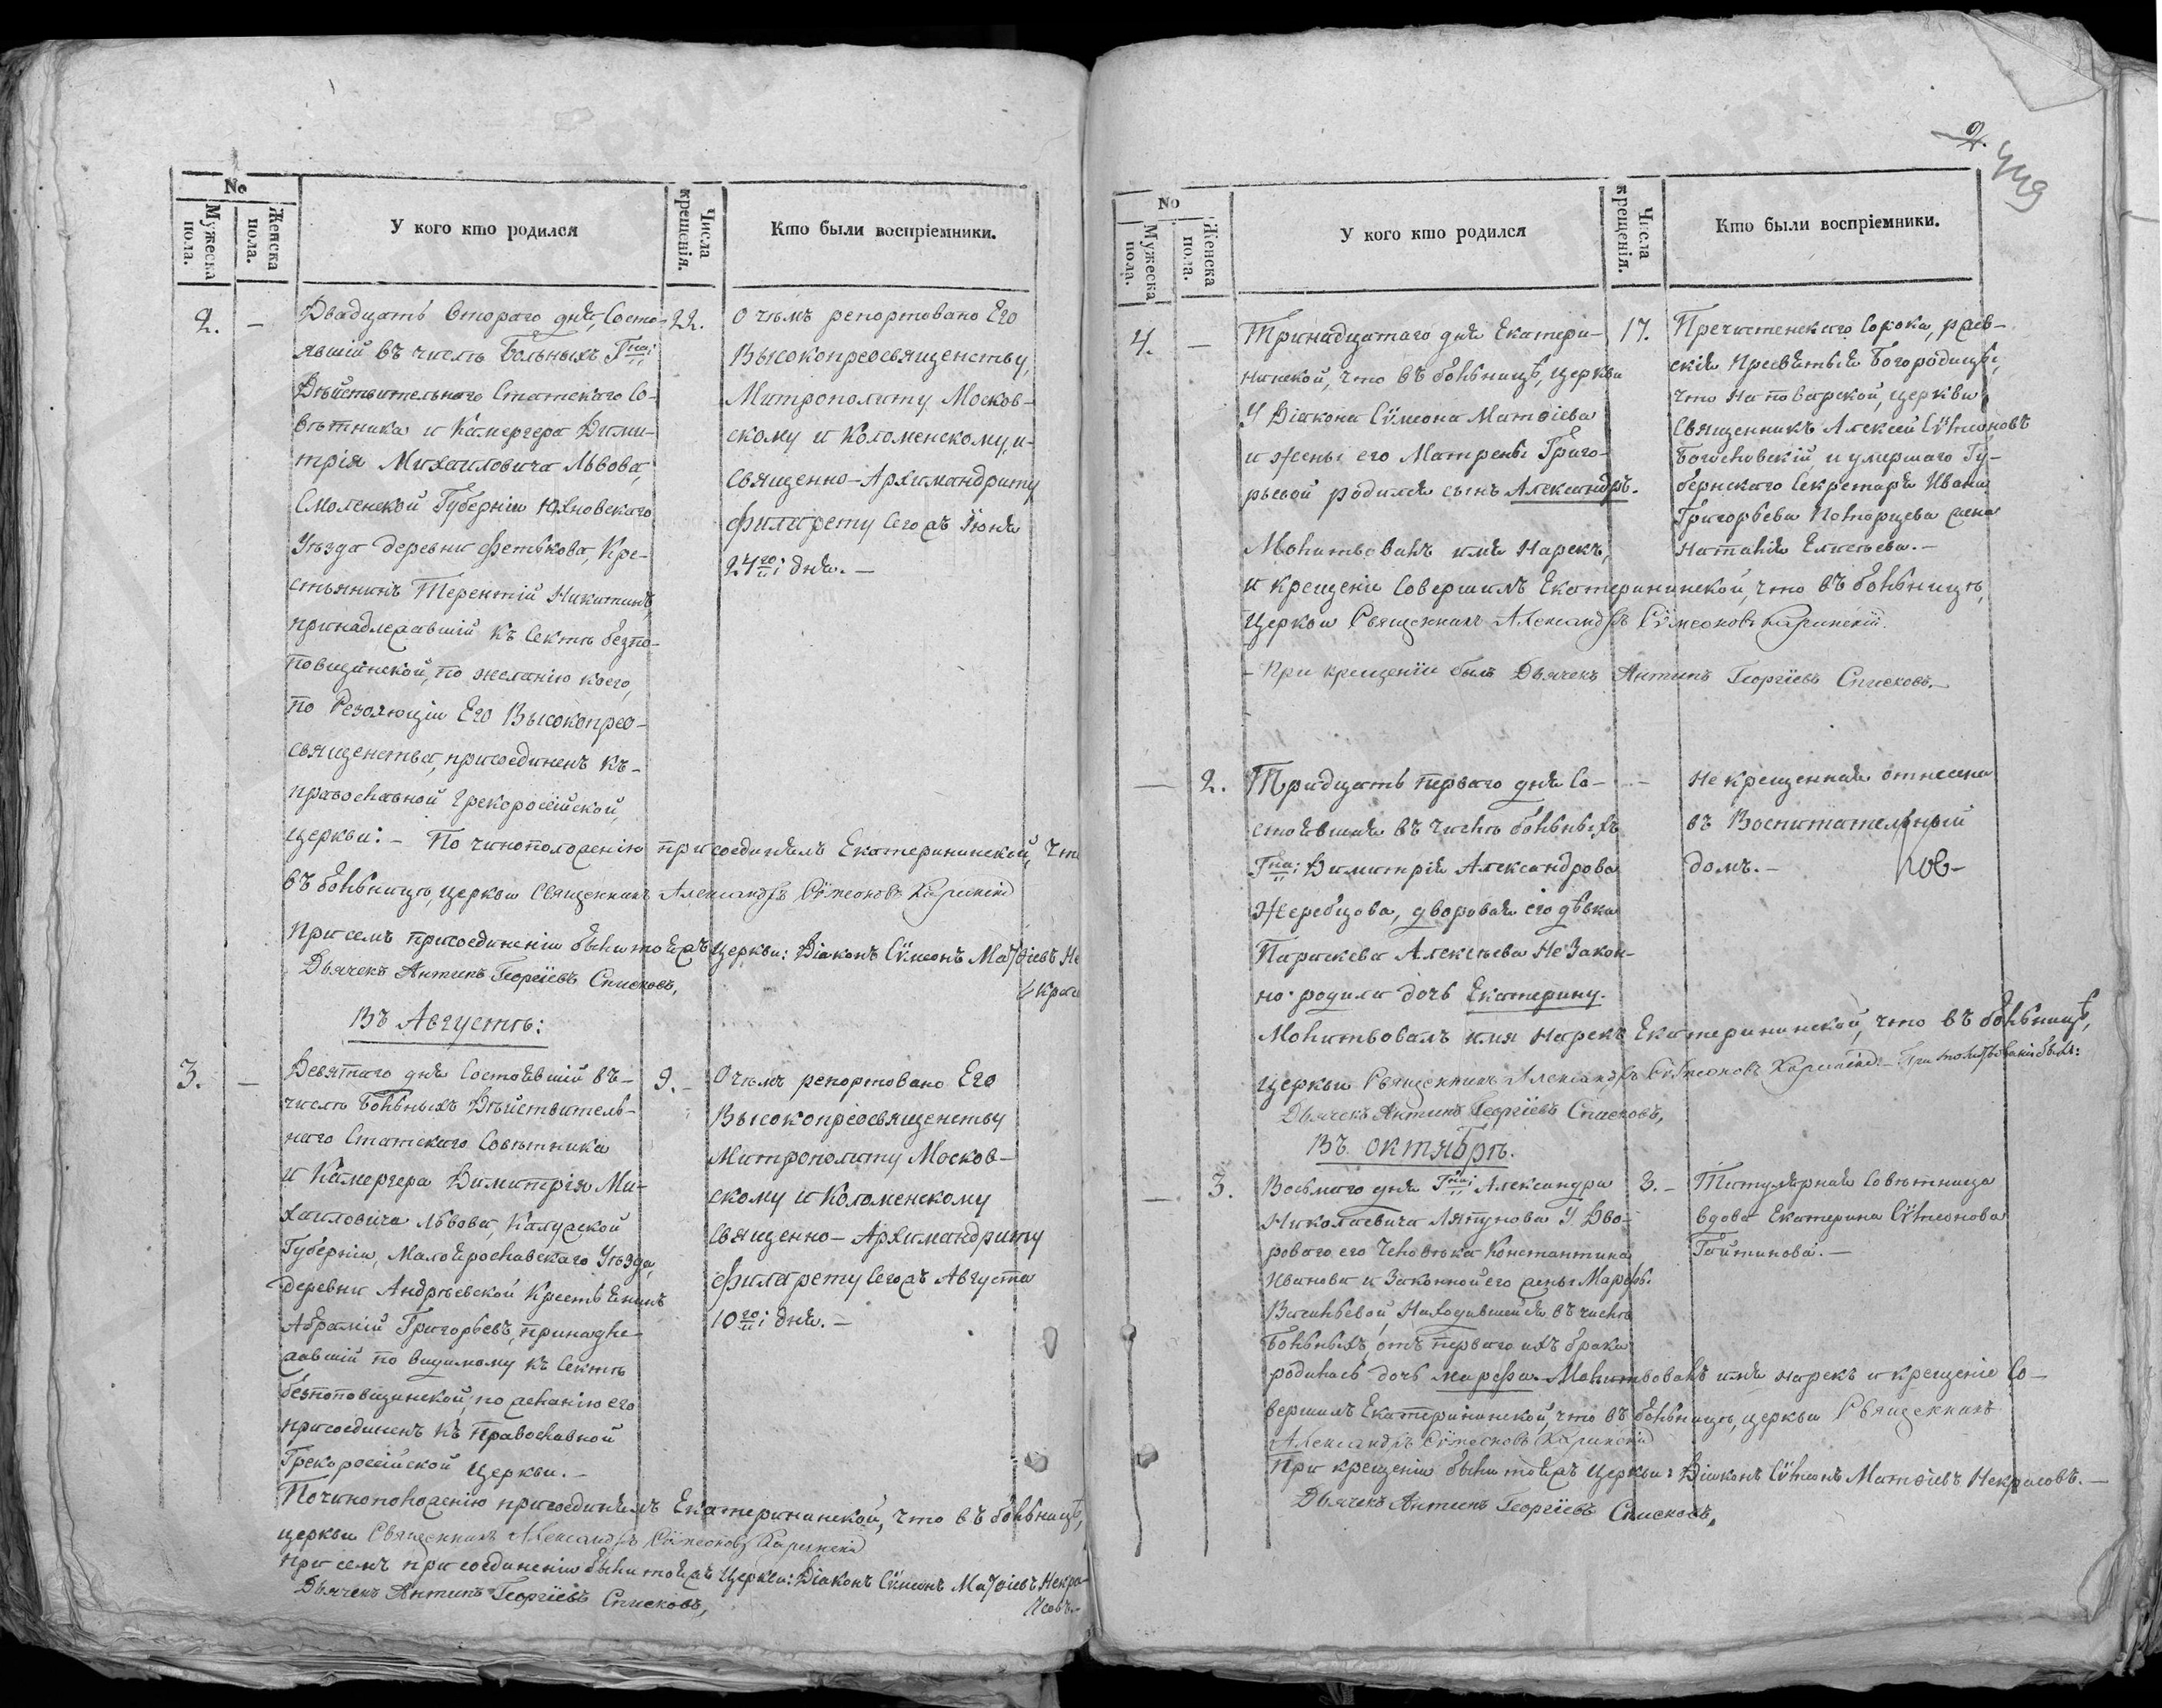 No
Мужеска пола.
Женска пола.
У кого кто родился
Числа крещенія.
Кто были воспріемники.
2. — Двадцать втораго дня, Состо-
явшій въ числѣ Больныхъ Гна:
Дѣйствительнаго Статскаго Со-
вѣтника и Камергера Дими-
трія Михаиловича Львова,
Смоленской Губерніи Юхновскаго
Уѣзда деревни Фетькова, Кре-
стьянинъ Терентій Никитинъ,
принадлежавшій къ Сектѣ безпо-
повщинской, по желанію коего,
по Резолюціи Его Высокопрео-
священства, присоединенъ къ-
православной Грекороссійской
церкви: — По чиноположенію присоединилъ Екатерининской, что
въ больницѣ, церкви Священникъ Александръ Сѵмеоновъ Каринскій
При семъ присоединеніи были тояжъ церкви: Діаконъ Сѵмеонъ Матѳіевъ Не
красо
Дьячекъ Антипъ Георгіевъ Списковъ,
22.
О чемъ репортовано Его
Высокопреосвященству,
Митрополиту Москов-
скому и Коломенскому, и-
Священно-Архимандриту
Филарету Сегожъ Іюня
24го: дня. —
Въ Августѣ:
3. — Девятаго дня Состоявшій въ-
числѣ Больныхъ Дѣйствитель-
наго Статскаго Совѣтника
и Камергера Димитрія Ми-
хаиловича Львова, Калужской
Губерніи, Малоярославскаго Уѣзда,
деревни Андрѣевской Крестьянинъ
Абрамій Григорьевъ, принадле-
жавшій по видимому къ Сектѣ
безпоповщинской, по желанію его
присоединенъ къ Православной
Грекороссійской Церкви. —
По чиноположенію присоединилъ Екатерининской, что въ больницѣ,
церкви Священникъ Александръ Сѵмеоновъ Каринскій
при семъ присоединеніи были тояжъ церкви: Діаконъ Сѵмеонъ Матѳіевъ Некра-
совъ.-
Дьячекъ Антипъ Георгіевъ Списковъ,
9. —
О чемъ репортовано Его
Высокопреосвященству
Митрополиту Москов-
скому и Коломенскому
Священно-Архимандриту
Филарету Сегожъ Августа
10го: дня. —
2.
No
Мужеска пола.
Женска пола.
У кого кто родился
Числа крещенія.
Кто были воспріемники.
4. — Тринадцатаго дня Екатери-
нинской, что въ больницѣ, церкви
У Діакона Сѵмеона Матѳіева
и жены его Матрены Григо-
рьевой родился сынъ Александръ.
Молитвовалъ имя Нарекъ,
и крещеніе Совершилъ Екатерининской, что въ больницѣ,
церкви Священникъ Александръ Сѵмеоновъ Каринскій.
— При крещеніи былъ Дьячекъ Антипъ Георгіевъ Списковъ. —
17.
Пречистенскаго Сорока, ржев-
скія Пресвятыя Богородицы,
что на поварской, церкви
Священникъ Алексей Сѵмеоновъ
и умершаго Гу-
бернскаго Секретаря Ивана
Григорьева жена
Наталія Елисѣева. —
— 2. Тридцать перваго дня Со-
стоявшая въ числѣ больныхъ
Гна: Димитрія Александрова
Жеребцова, дворовая его дѣвка
Параскева Алексѣева Не Закон-
но родила дочь Екатерину.
Молитвовалъ имя нарекъ Екатерининской, что въ больницѣ,
церкви Священникъ Александръ Сѵмеоновъ Каринскій. — При молитвованіи былъ:
Дьячекъ Антипъ Георгіевъ Списковъ,
—
Не крещенная отнесена
въ Воспитательный
домъ. —
Въ октябрѣ.
— 3. Восьмаго дня Гна: Александра
Николаевича Ляпунова У Дво-
роваго его Человѣка Константина
Иванова и Законной его жены Марѳы
Васильевой, Находившейся въ числѣ
Больныхъ, отъ перваго ихъ брака
родилась дочь Марѳа. Молитвовалъ имя нарекъ и крещеніе Со-
вершилъ Екатерининской, что въ больницѣ, церкви Священникъ
Александръ Сѵмеоновъ Каринскій
При крещеніи были тояжъ Церкви: Діаконъ Сѵмеонъ Матѳіевъ Некрасовъ. —
Дьячекъ Антипъ Георгіевъ Списковъ,
8. —
Титулярная Совѣтница
вдова Екатерина Сѵмеонова